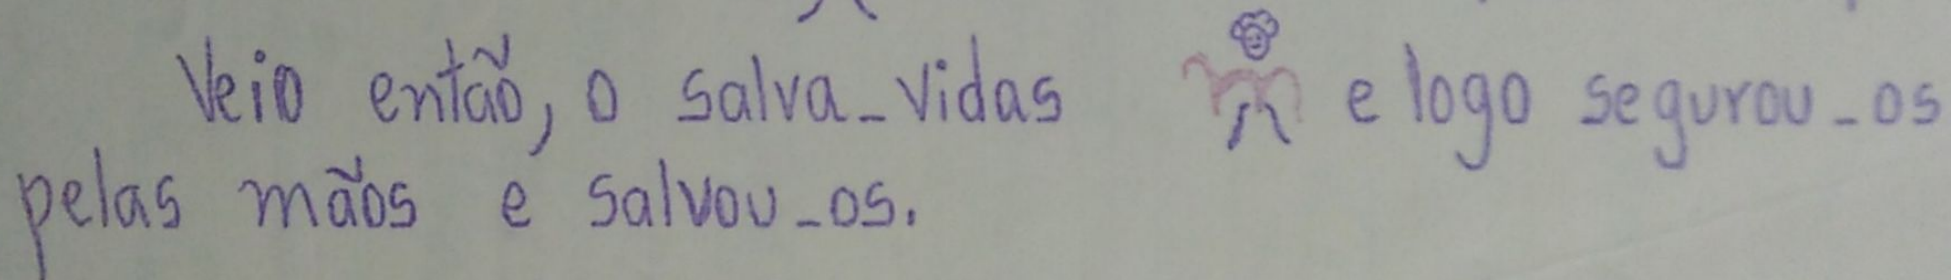 Veio então, o salva-vidas e logo segurou-os
pelas mãos e salvou-os.